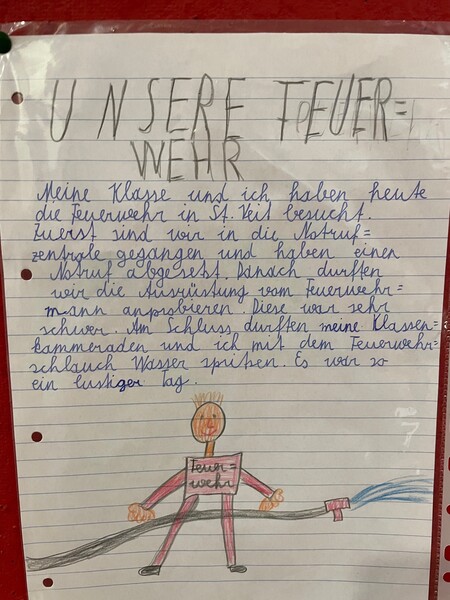 UNSERE FEUER=
WEHR
Meine Klasse und ich haben heute
die Feuerwehr in St. Veit besucht.
Zuerst sind wir in die Notruf=
zentrale gegangen und haben einen
Notruf abgesetzt. Danach durften
wir die Ausrüstung vom Feuerwehr=
mann anprobieren. Diese war sehr
schwer. Am Schluss durften meine Klassen=
kammeraden und ich mit dem Feuerwehr=
schlauch Wasser spritzen. Es war so
ein lustiger Tag.
Feuer=
wehr